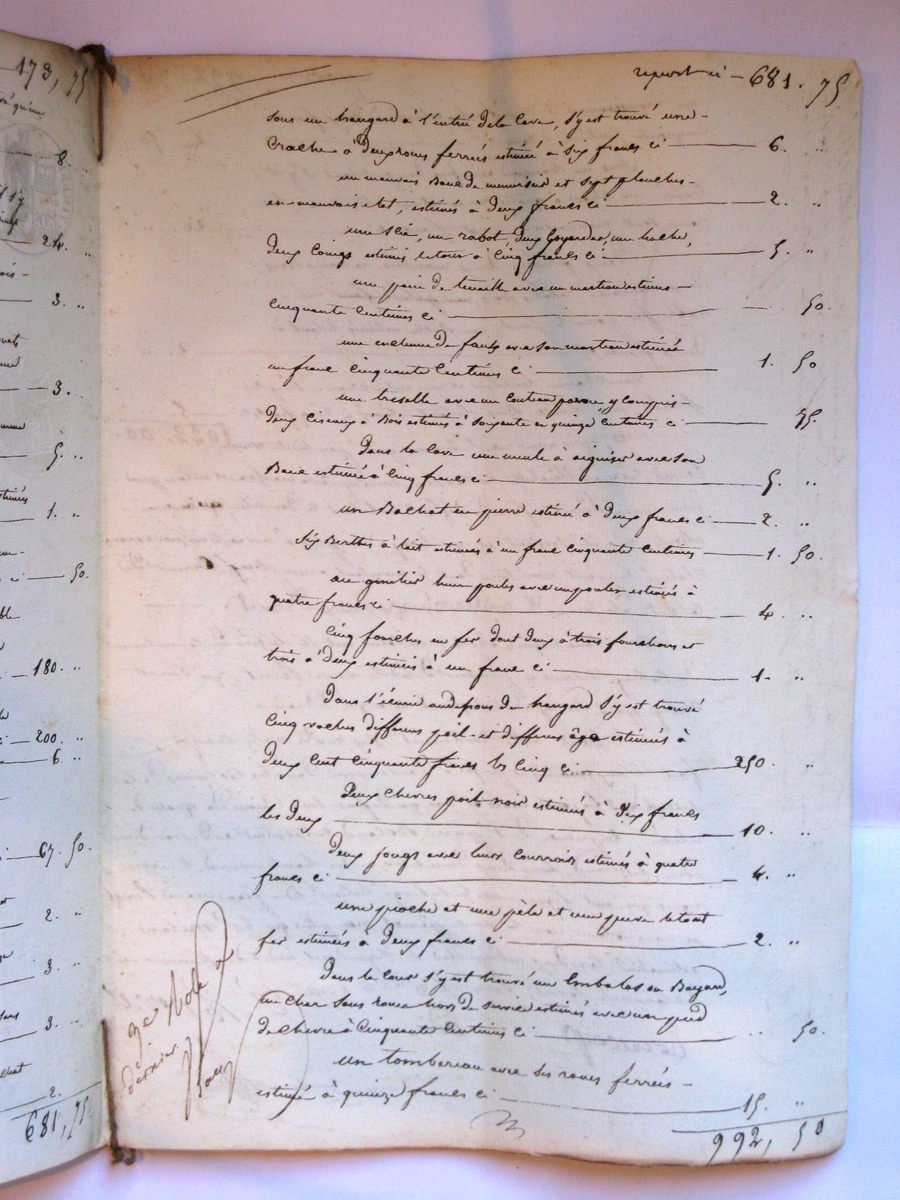 173, 75
8. "
24. "
3. "
3. "
5. "
1. "
50.
180. "
200. "
6. "
67. 50.
2. "
3. "
3. "
2. "
681, 75
report ci — 681. 75
sous un hangard à l'entrée dela Cave, s'y est trouvé une
à Deux roues ferrées estimée à Six francs ci — 6. "
un mauvais Banc de menuisier et sept planches
en mauvais etat, estimés à Deux francs ci — 2. "
une Scie, un rabot, Deux Goyardes, un hache,
Deux Coings estimés le tout à Cinq francs ci — 5. "
une paire de tenaille avec un marteau estimés
Cinquante Centimes ci — . 50.
une enclume de faulx avec son marteau estimée
un franc Cinquante Centimes ci — 1. 50
une avec un Couteau y Compris
Deux Ciseaux à Bois estimés à Soixante et quinze Centimes ci — 75.
Dans la Cave une meule à aiguiser avec son
Banc estimée à Cinq francs ci — 5. "
un Bachat en pierre estimé à Deux francs ci — 2. "
Six Berthes à lait estimées à un franc Cinquante Centimes — 1. 50.
au huit poules avec un poulet estimés à
quatre francs ci — 4. "
Cinq fourches en fer dont Deux à trois fourchons et
trois à Deux estimées à un franc ci — 1. "
Dans l'écurie audessous du hangard S'y est trouvé
Cinq vaches differens poil et differens âge estimées à
Deux Cent Cinquante francs les Cinq ci — 250 "
Deux Chevres poil noir estimées à Dix francs
les Deux — 10. "
Deux jougs avec leurs Courroies estimés à quatre
francs ci — 4. "
une pioche et une pèle et une le tout
fer estimés à Deux francs ci — 2. "
Dans la Cour S'y est trouvé un ou Bayard,
un Char Sans roues hors de service estimés avec un pied
de chevre à Cinquante Centimes ci — " 50.
un tombereau avec Ses roues ferrées
estimé à quinze francs ci — 15. "
992, 50
3e Rôle
dernier